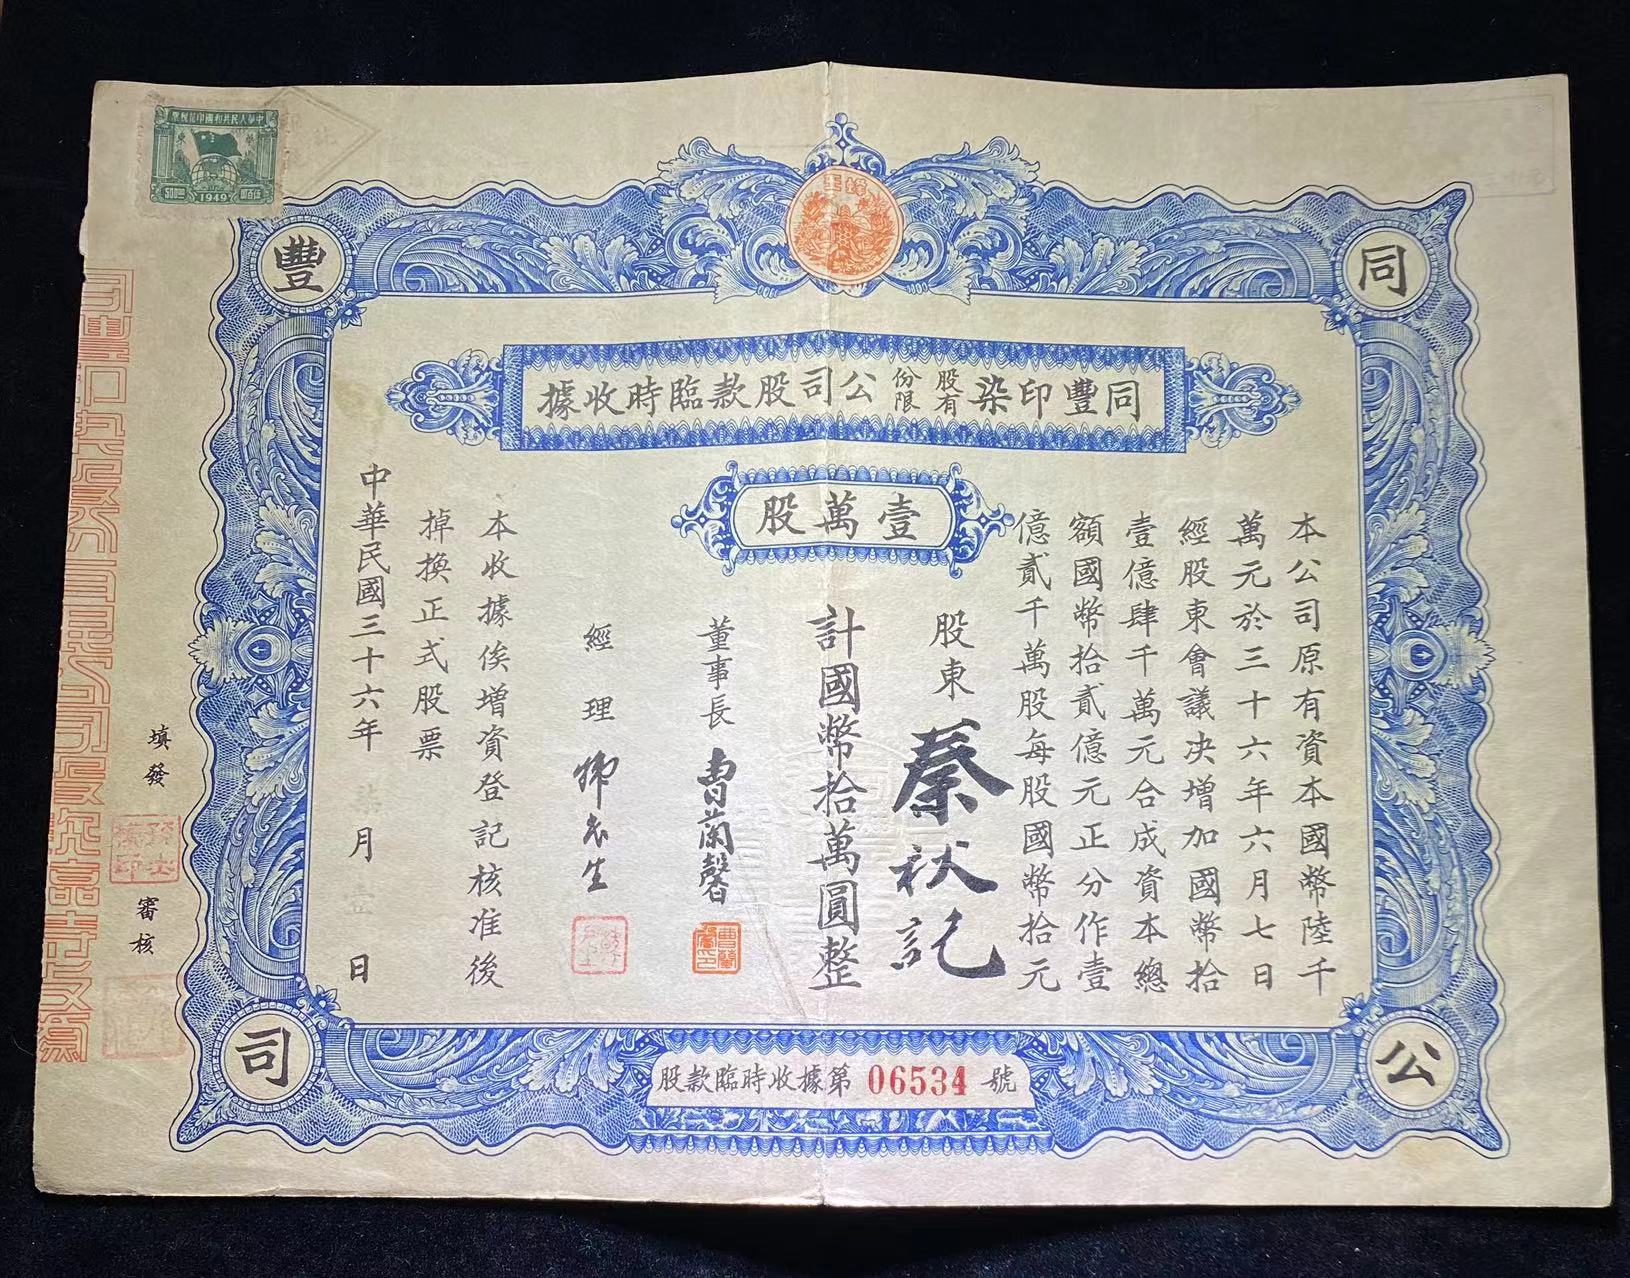 中華人民共和國印花稅票
500圓
1949
伍百圓
同
豐
公
司
同豐印染股份有限公司股款臨時收據
壹萬股
本公司原有資本國幣陸千
萬元於三十六年六月七日
經股東會議決增加國幣拾
壹億肆千萬元合成資本總
額國幣拾貳億元正分作壹
億貳千萬股每股國幣拾元
股東 秦秋記
計國幣拾萬圓整
董事長 曹蘭馨
經理
本收據俟增資登記核准後
掉換正式股票
中華民國三十六年柒月壹日
填發
審核
股款臨時收據第 06534 號